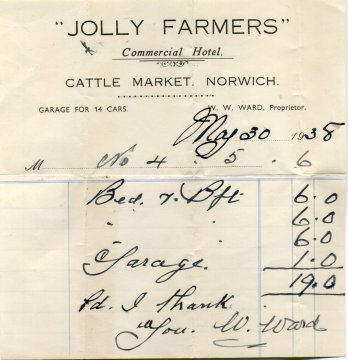 "JOLLY FARMERS"
Commercial Hotel.
CATTLE MARKET. NORWICH.
GARAGE FOR 14 CARS. W. W. WARD, Proprietor.
May 30 1938
M No 4 . 5 . 6
Bed. & Bft 6.0
" " 6.0
6.0
Garage. 1.0
19.0
Pd. I thank
You. W. Ward